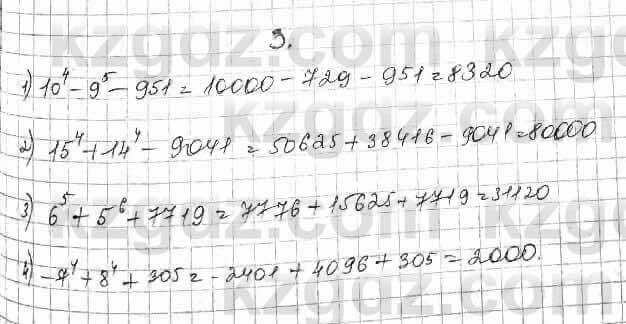 3.
1) 10⁴ - 9⁵ - 951 = 10000 - 729 - 951 = 8320
2) 15⁴ + 14⁴ - 9041 = 50625 + 38416 - 9041 = 80000
3) 6⁵ + 5⁶ + 7719 = 7776 + 15625 + 7719 = 31120
4) -7⁴ + 8⁴ + 305 = -2401 + 4096 + 305 = 2000.
kzgdz.com